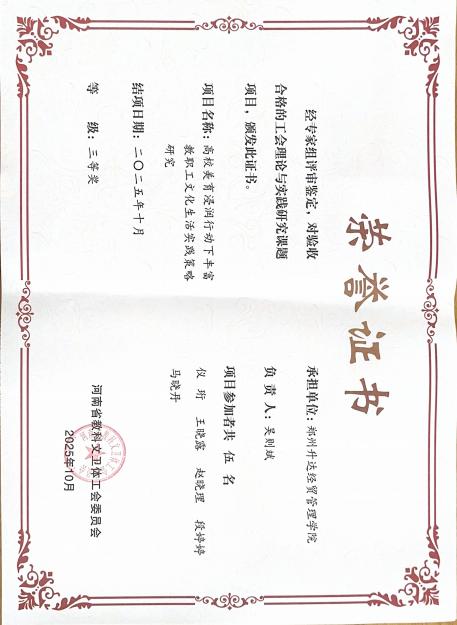 荣誉证书
经专家组评审鉴定，对验收
合格的工会理论与实践研究课题
项目，颁发此证书。
项目名称：高校美育浸润行动下丰富
教职工文化生活实践策略
研究
结项日期：二〇二五年十月
等 级：三等奖
承担单位：郑州升达经贸管理学院
负 责 人：吴则斌
项目参加者共 伍 名
仪 珩 王晓露 赵晓理 段婷婷
马晓丹
河南省教科文卫体工会委员会
2025年10月